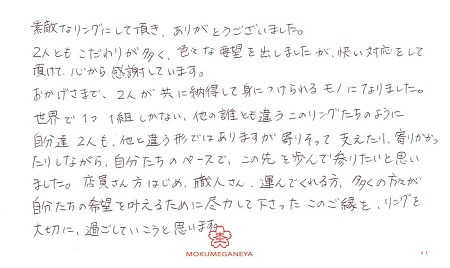 素敵なリングにして頂き、ありがとうございました。
2人ともこだわりが多く、色々な要望を出しましたが、快い対応をして
頂けて、心から感謝しています。
おかげさまで、2人が共に納得して身につけられるモノになりました。
世界で1つ1組しかない、他の誰とも違うこのリングたちのように
自分達2人も、他と違う形ではありますが寄りそって支えたり、寄りかかっ
たりしながら、自分たちのペースで、この先を歩んで参りたいと思い
ました。店員さん方はじめ、職人さん、運んでくれる方、多くの方々が
自分たちの希望を叶えるために尽力して下さったこのご縁を、リングを
大切に、過ごしていこうと思います。
MOKUMEGANEYA